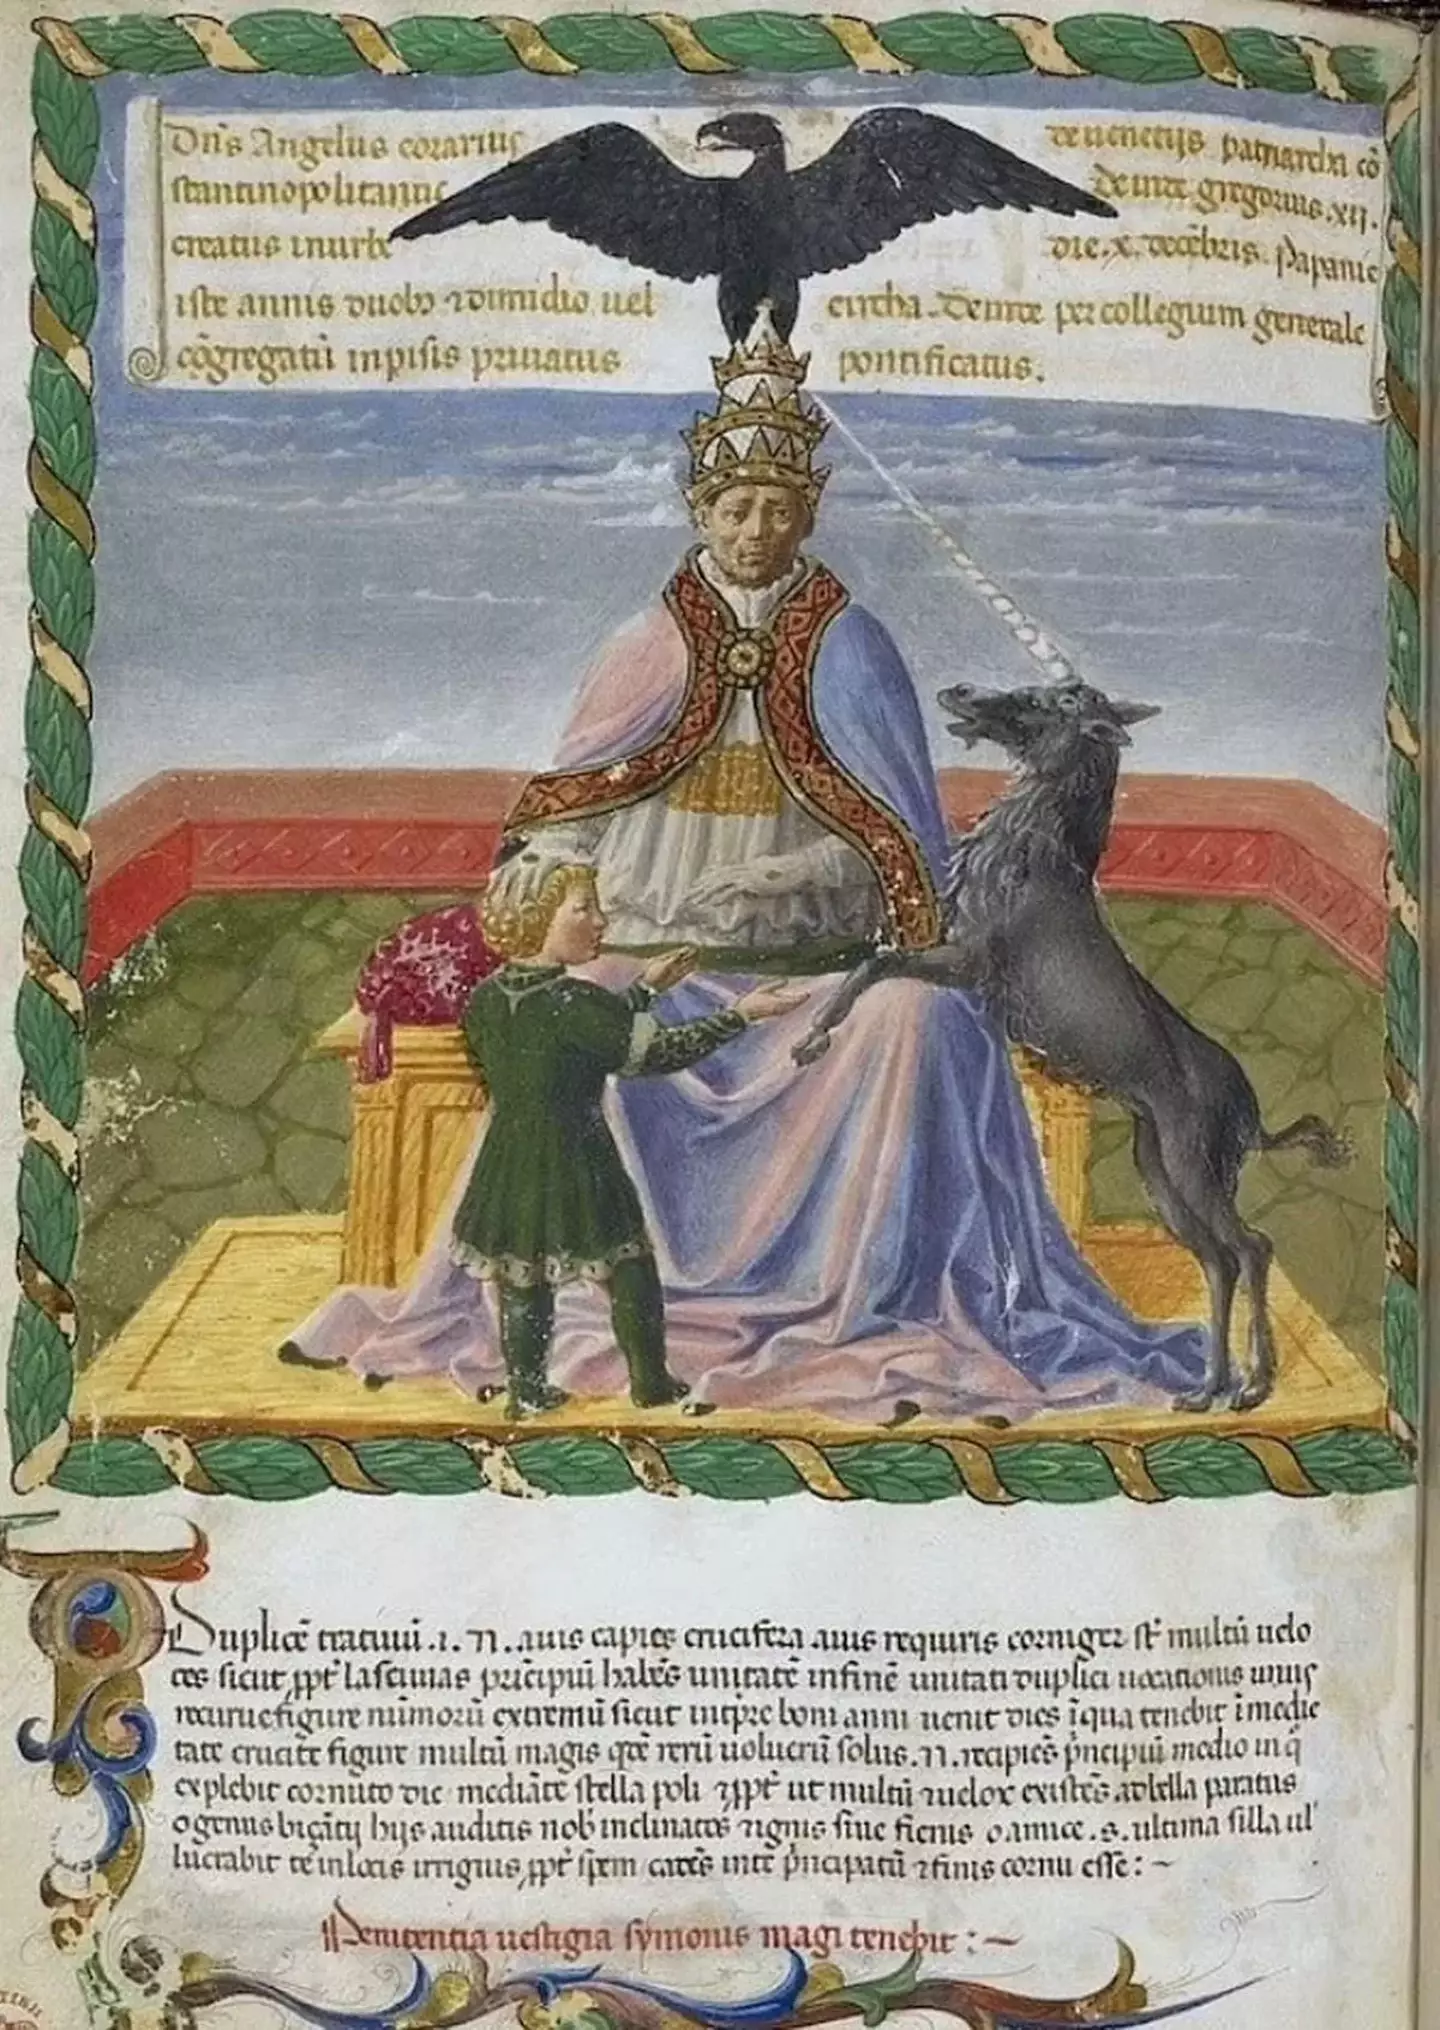 Dn̄s Angelus corarius de uenetijs patriarcha cō
stantinopolitanus Deinde gregorius .xij.
creatus in urbe die .x. decēbris. Papanit
iste annis duobꝫ ⁊ dimidio uel circha. Deinde per collegium generale
cōgregatū in pisis priuatus pontificatus.
Duplicē tratuuī .i. n. auis capies crucifera auis requiris corniger st̄ multū uelo
ces sicut lasciuias prīcipiū habēs unitatē in finē unitati duplici uocationis unius
figure nūmorū extremū sicut boni anni uenit dies ī qua tenebit ī medie
tate crucis figure multū magis rerū uolucrū solus .n. recipies prīncipiū medio in
explebit cornuto die mediāte stella poli ut multū ⁊ uelox existēs ad bella paratus
o genus hijs auditis nob̄ inclinates ⁊ ignis siue ficus o amice .s. ultima silla
luctabit te in locis irriguis spem inter prīncipatū ⁊ finis cornu esse : ~
Penitentia uestigia symonis magi tenebit : ~